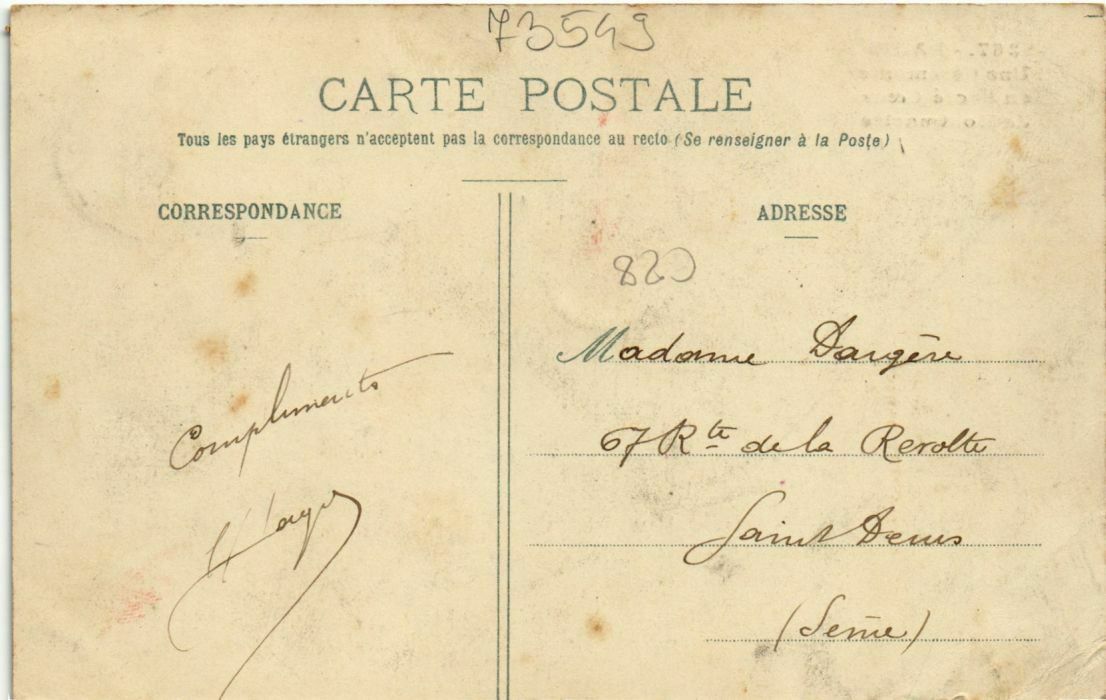 73549
CARTE POSTALE
Tous les pays étrangers n'acceptent pas la correspondance au recto (Se renseigner à la Poste)
CORRESPONDANCE
Compliments
ADRESSE
820
Madame Dargère
67 Rte de la Revolte
Saint Denis
(Seine)